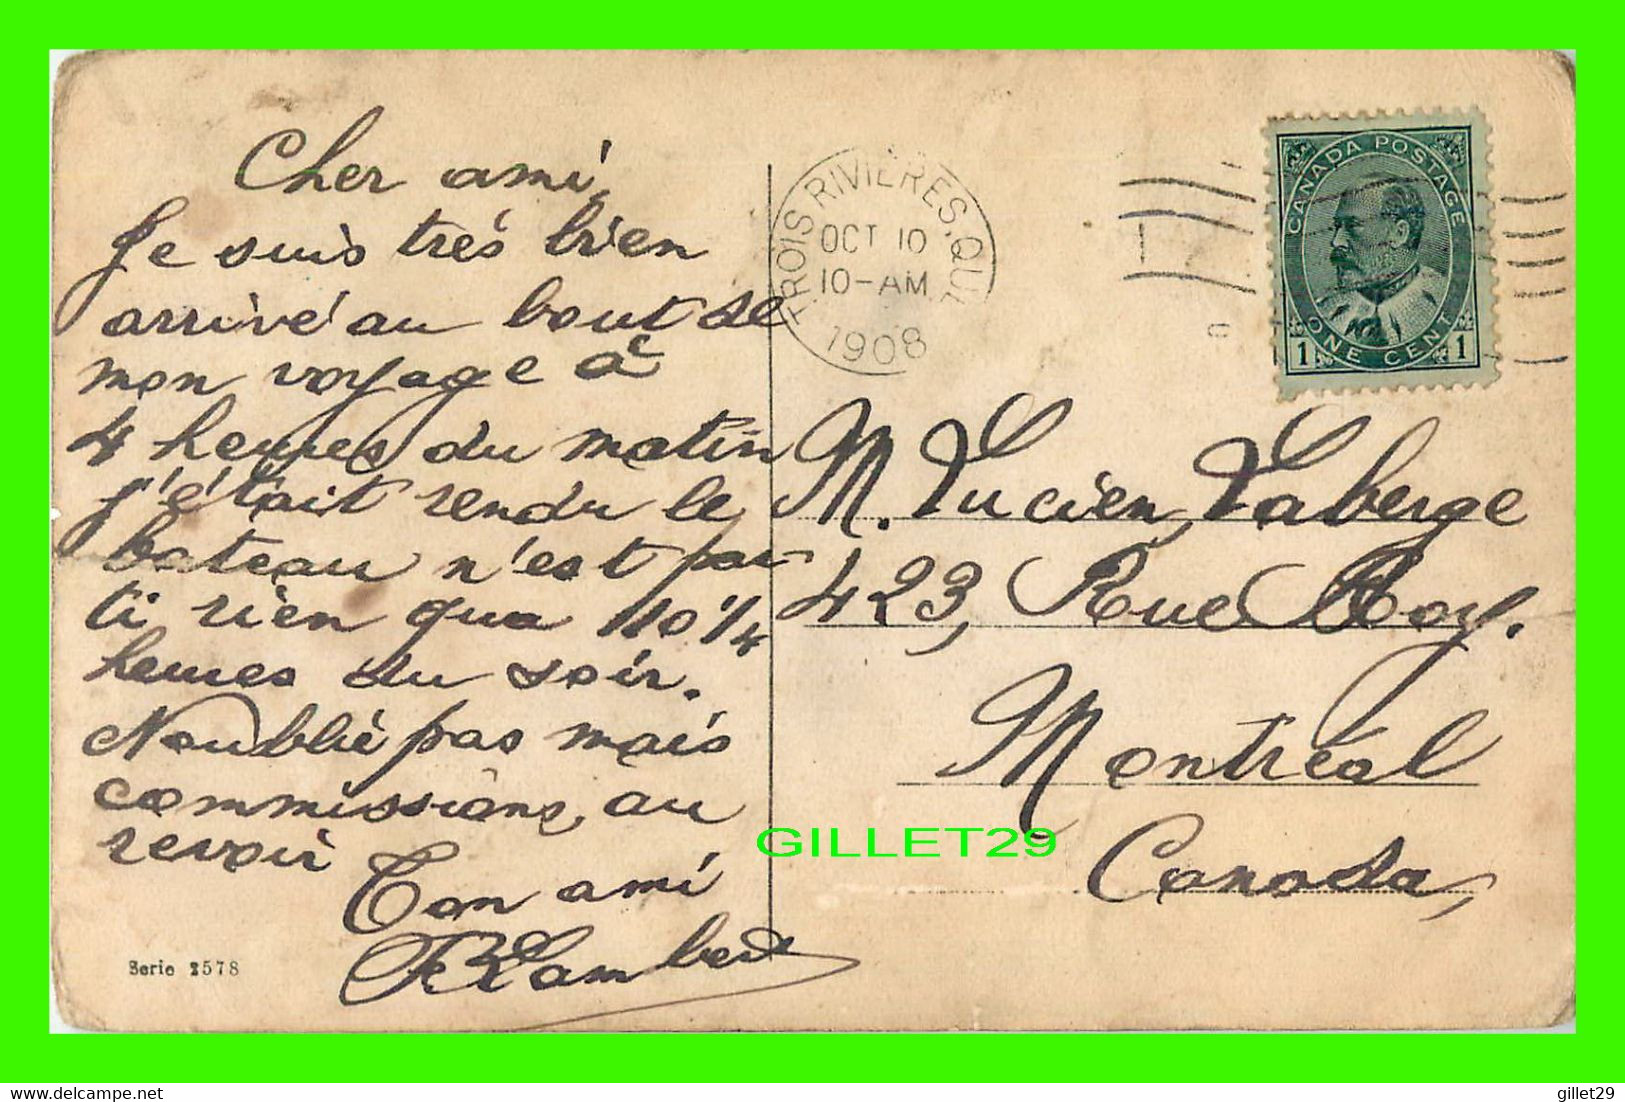 Cher ami,
Je suis très bien
arrivé au bout de
mon voyage à
4 heures du matin
j'était rendu le
bateau n'est par
ti rien qua 10 1/4
heures du soir.
N'oublié pas mais
commissions, au
revoir
Ton ami
Lambert
Serie 2578
TROIS RIVIERES, QUE
OCT 10
10-AM
1908
CANADA POSTAGE
1 ONE CENT 1
M. Lucien Laberge
423, Rue Roy.
Montréal
Canada,
GILLET29
delcampe.net
gillet29